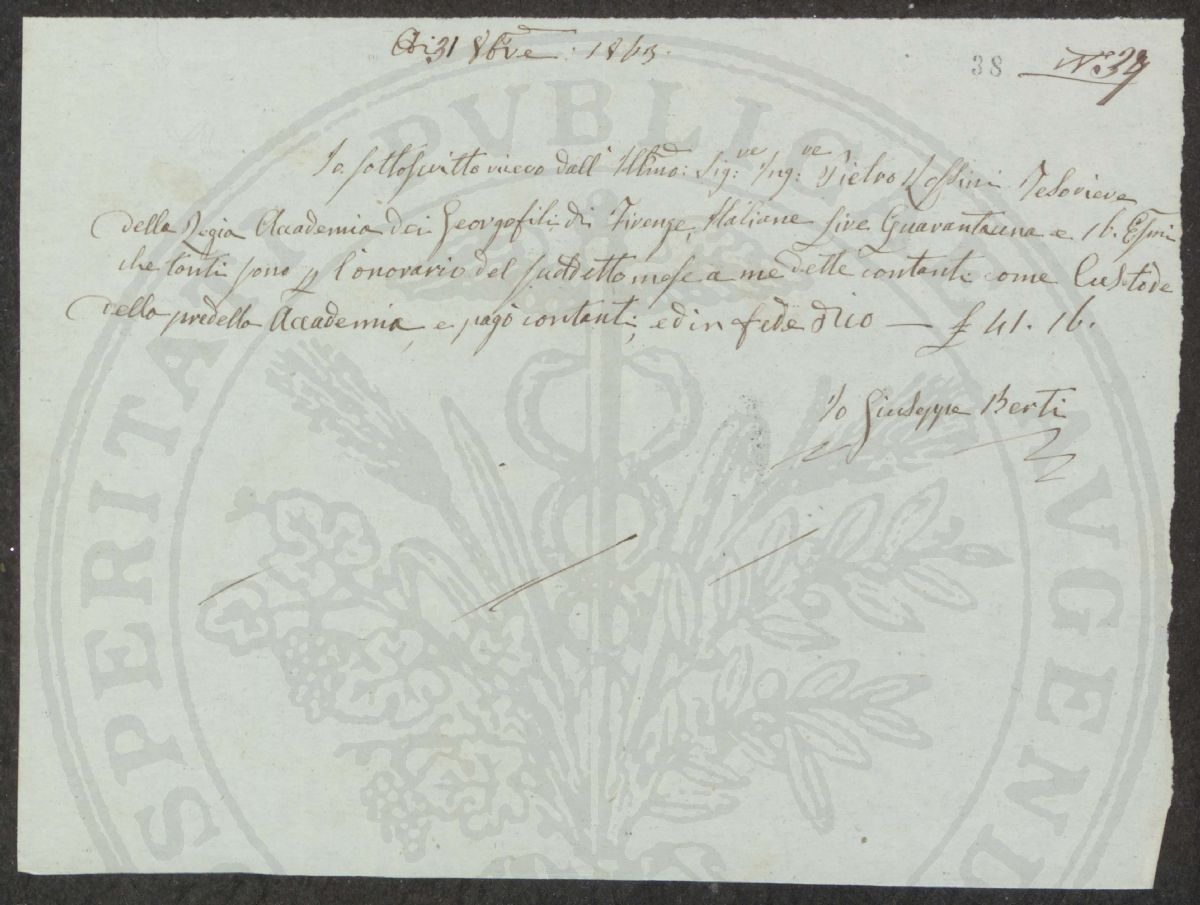 Adi 31 8bre: 1863.
38 N° 39
Io sottoscritto ricevo dall' Illmo: Sigre: Ingre: Pietro Rossini Tesoriere
della Regia Accademia dei Georgofili di Firenze, Italiane Lire Quarantauna e 16. Esmi
che tonti sono p l'onorario del suddetto mese a me dette contanti come Custode
della predetta Accademia, e pago contanti, ed in fede dico — £ 41. 16.
Io Giuseppe Berti
PROSPERITATI PUBLICAE AUGENDAE